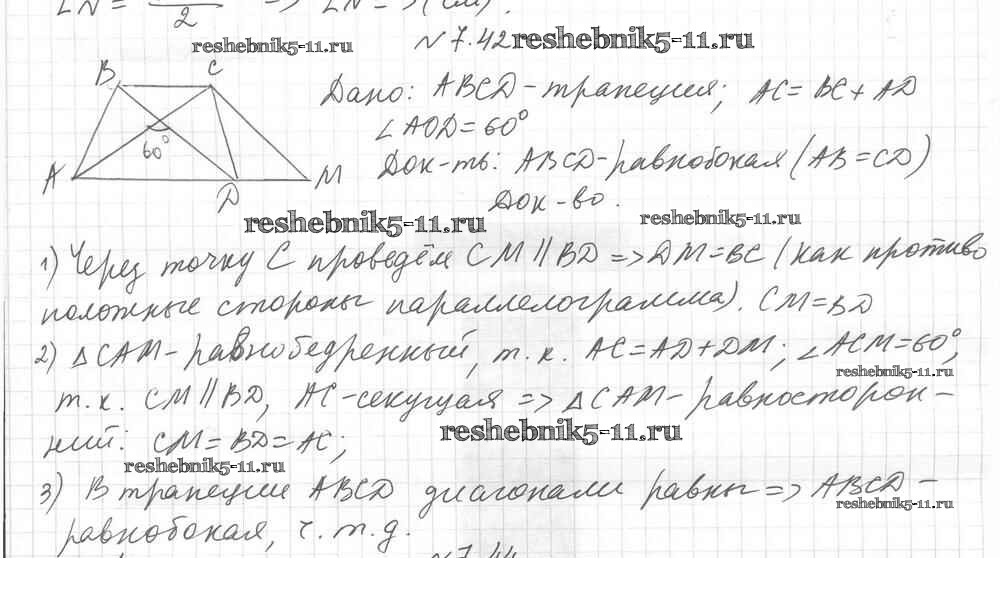 LN = 2 =>
reshebnik5-11.ru
N 7.42 reshebnik5-11.ru
B C
60°
A D M
Дано: ABCD - трапеция; AC = BC + AD
∠AOD = 60°
Док-ть: ABCD - равнобокая (AB = CD)
Док-во.
reshebnik5-11.ru reshebnik5-11.ru
1) Через точку C проведём CM || BD => DM = BC (как противо
положные стороны параллелограмма). CM = BD
2) △CAM - равнобедренный, т.к. AC = AD + DM; ∠ACM = 60°,
reshebnik5-11.ru
т.к. CM || BD, AC - секущая => △CAM - равносторон-
reshebnik5-11.ru
ний: CM = BD = AC;
reshebnik5-11.ru
3) В трапеции ABCD диагонали равны => ABCD -
reshebnik5-11.ru
равнобокая, ч.т.д.
N 7.44